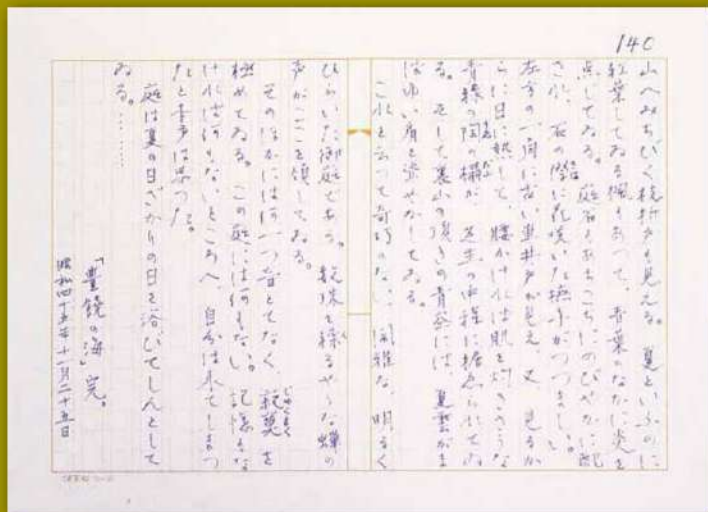 140
山へみちびく枝折戸も見える。夏といふのに
紅葉してゐる楓もあつて、青葉のなかに炎を
点じてゐる。庭石もあちこちにのびやかに配
され、石の際に花咲いた撫子がつつましい。
左方の一角に古い車井戸が見え、又、見るか
らに日に熱して、腰かければ肌を灼きさうな
青緑の陶の榻が、芝生の中程に据ゑられてゐ
る。そして裏山の頂きの青空には、夏雲がま
ばゆい肩を聳やかしてゐる。
これと云つて奇巧のない、閑雅な、明るく
ひらいた御庭である。数珠を繰るやうな蝉の
声がここを領してゐる。
そのほかには何一つ音とてなく、寂寞を
じやくまく
極めてゐる。この庭には何もない。記憶もな
ければ何もないところへ、自分は来てしまつ
たと本多は思つた。
庭は夏の日ざかりの日を浴びてしんとして
ゐる。‥‥‥‥
「豊饒の海」完。
昭和四十五年十一月二十五日